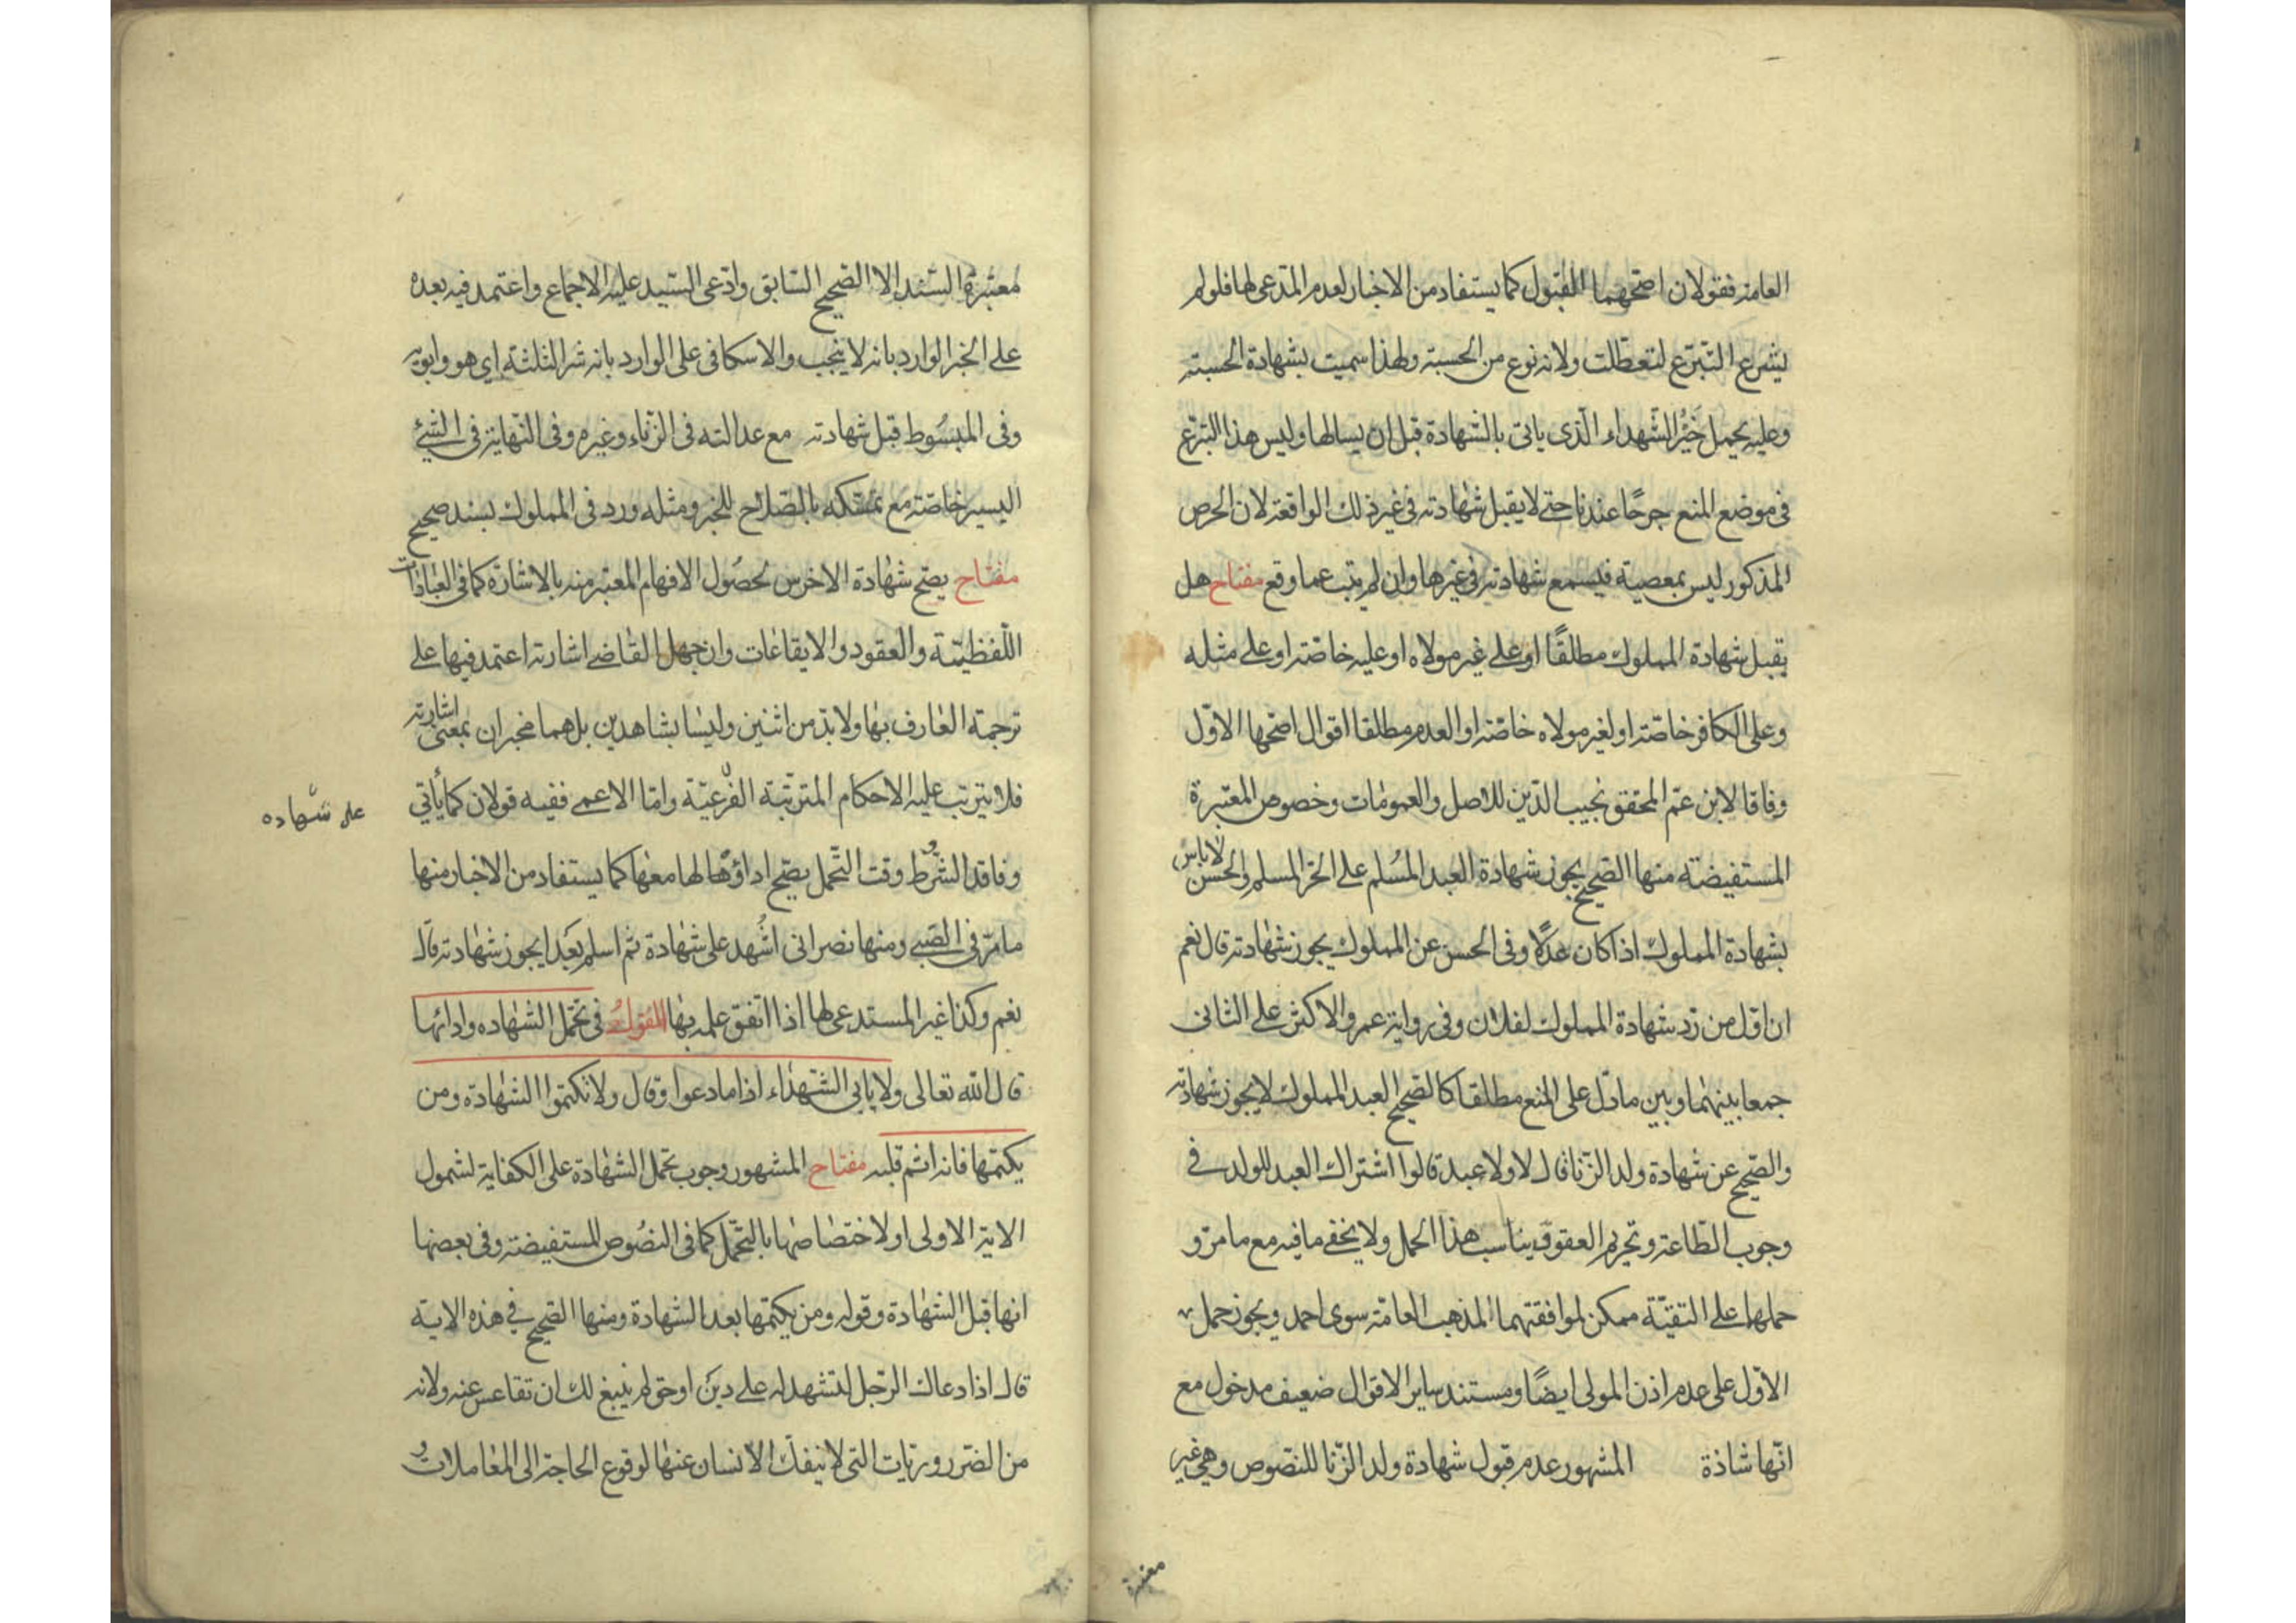 العامة فقولان اصحهما القبول كما يستفاد من الاخبار لعدم المدعى لها فلو لم
يشرع التبرّع لتعطّلت ولانه نوع من الحسبة ولهذا سميت بشهادة الحسبة
وعليه يحمل خَيْرُ الشّهداء الّذى ياتى بالشهادة قبل ان يسالها وليس هذا التبرّع
فى موضع المنع جرحًا عندنا حتى لا يقبل شهادته فى غير ذلك الواقعة لان الحرص
المذكور ليس بمعصية فيسمع شهادته فى غيرها وان لم يتب عما وقع مفتاح هل
يقبل شهادة المملوك مطلقًا او على غير مولاه او عليه خاصّة او على مثله
وعلى الكافر خاصّة او لغير مولاه خاصّة او العدم مطلقا اقوال اصحّها الاوّل
وفاقا لابن عمّ المحقق نجيب الدّين للاصل والعمومات وخصوص المعتبرة
المستفيضة منها الصّحيح يجوز شهادة العبد المُسلم على الحرّ المسلم والحسن لا باس
بشهادة المملوك اذا كان عدلًا وفى الحسن عن المملوك يجوز شهادته قال نعم
ان اوّل من ردّ شهادة المملوك لفلان وفى رواية عمر والاكثر على الثانى
جمعا بينهما وبين ما دّل على المنع مطلقا كالصّحيح العبد المملوك لا يجوز شهادته
والصّحيح عن شهادة ولد الزّنا قال لا ولا عبد قالوا اشتراك العبد للولد فى
وجوب الطّاعة وتحريم العقوق يناسب هذا الحمل ولا يخفى ما فيه مع ما مرّ و
حملها على التقيّة ممكن لموافقتهما لمذهب العامّة سوى احمد ويجوز حمل
الاوّل على عدم اذن المولى ايضًا ومستند ساير الاقوال ضعيف مدخول مع
انّها شاذة المشهور عدم قبول شهادة ولد الزّنا للنّصوص وهى غير
معتبرة
معتبرة السّند الا الصّحيح السّابق وادّعى السّيد عليه الاجماع واعتمد فيه بعده
على الخبر الوارد بانه لا ينجب والاسكافى على الوارد بانه شر الثلثة اي هو وابويه
وفى المبسُوط قبل شهادته مع عدالته فى الزّناء وغيره وفى النّهاية فى الشئ
اليسير خاصّة مع تمسّكه بالصّلاح للخبر ومثله ورد فى المملوك بسند صحيح
مفتاح يصحّ شهادة الاخرس لحصُول الافهام المعتبر منه بالاشارة كما فى العبادات
اللّفظيّة والعقود والايقاعات وان جهل القاضى اشارته اعتمد فيها على
ترجمة العارف بها ولا بدّ من اثنين وليسا بشاهدين بل هما مخبران بمعنى اشارته
فلا يترتب عليه الاحكام المترتّبة الفرعيّة وامّا الاعمى ففيه قولان كما يأتي
على شهاده
وفاقد الشّرط وقت التّحمل يصحّ اداؤها لها معها كما يستفاد من الاخبار منها
ما مرّ فى الصّبى ومنها نصرانى اشُهد على شهادة ثم اسلم بَعَد ايجوز شهادته قال
نعم وكذا غير المستدعى لها اذا اتّفق علمه بها القول فى تحمّل الشهاده وادائها
قال الله تعالى ولا يابى الشّهداء اذا ما دعوا وقال ولا تكتموا الشّهادة ومن
يكتمها فانه اثم قلبه مفتاح المشهور وجوب تحمّل الشّهادة على الكفاية لشمول
الاية الاولى او لاختصاصها بالتّحمّل كما فى النصُوص المستفيضة وفى بعضها
انها قبل الشّهادة وقوله ومن يكتمها بعد الشهادة ومنها الصّحيح فى هذه الاية
قال اذا دعاك الرّجل لتشهد له على دين او حق لم ينبغ لك ان تقاعس عنه ولانه
من الضّروريات التى لا ينفك الانسان عنها لوقوع الحاجة الى المعاملات و